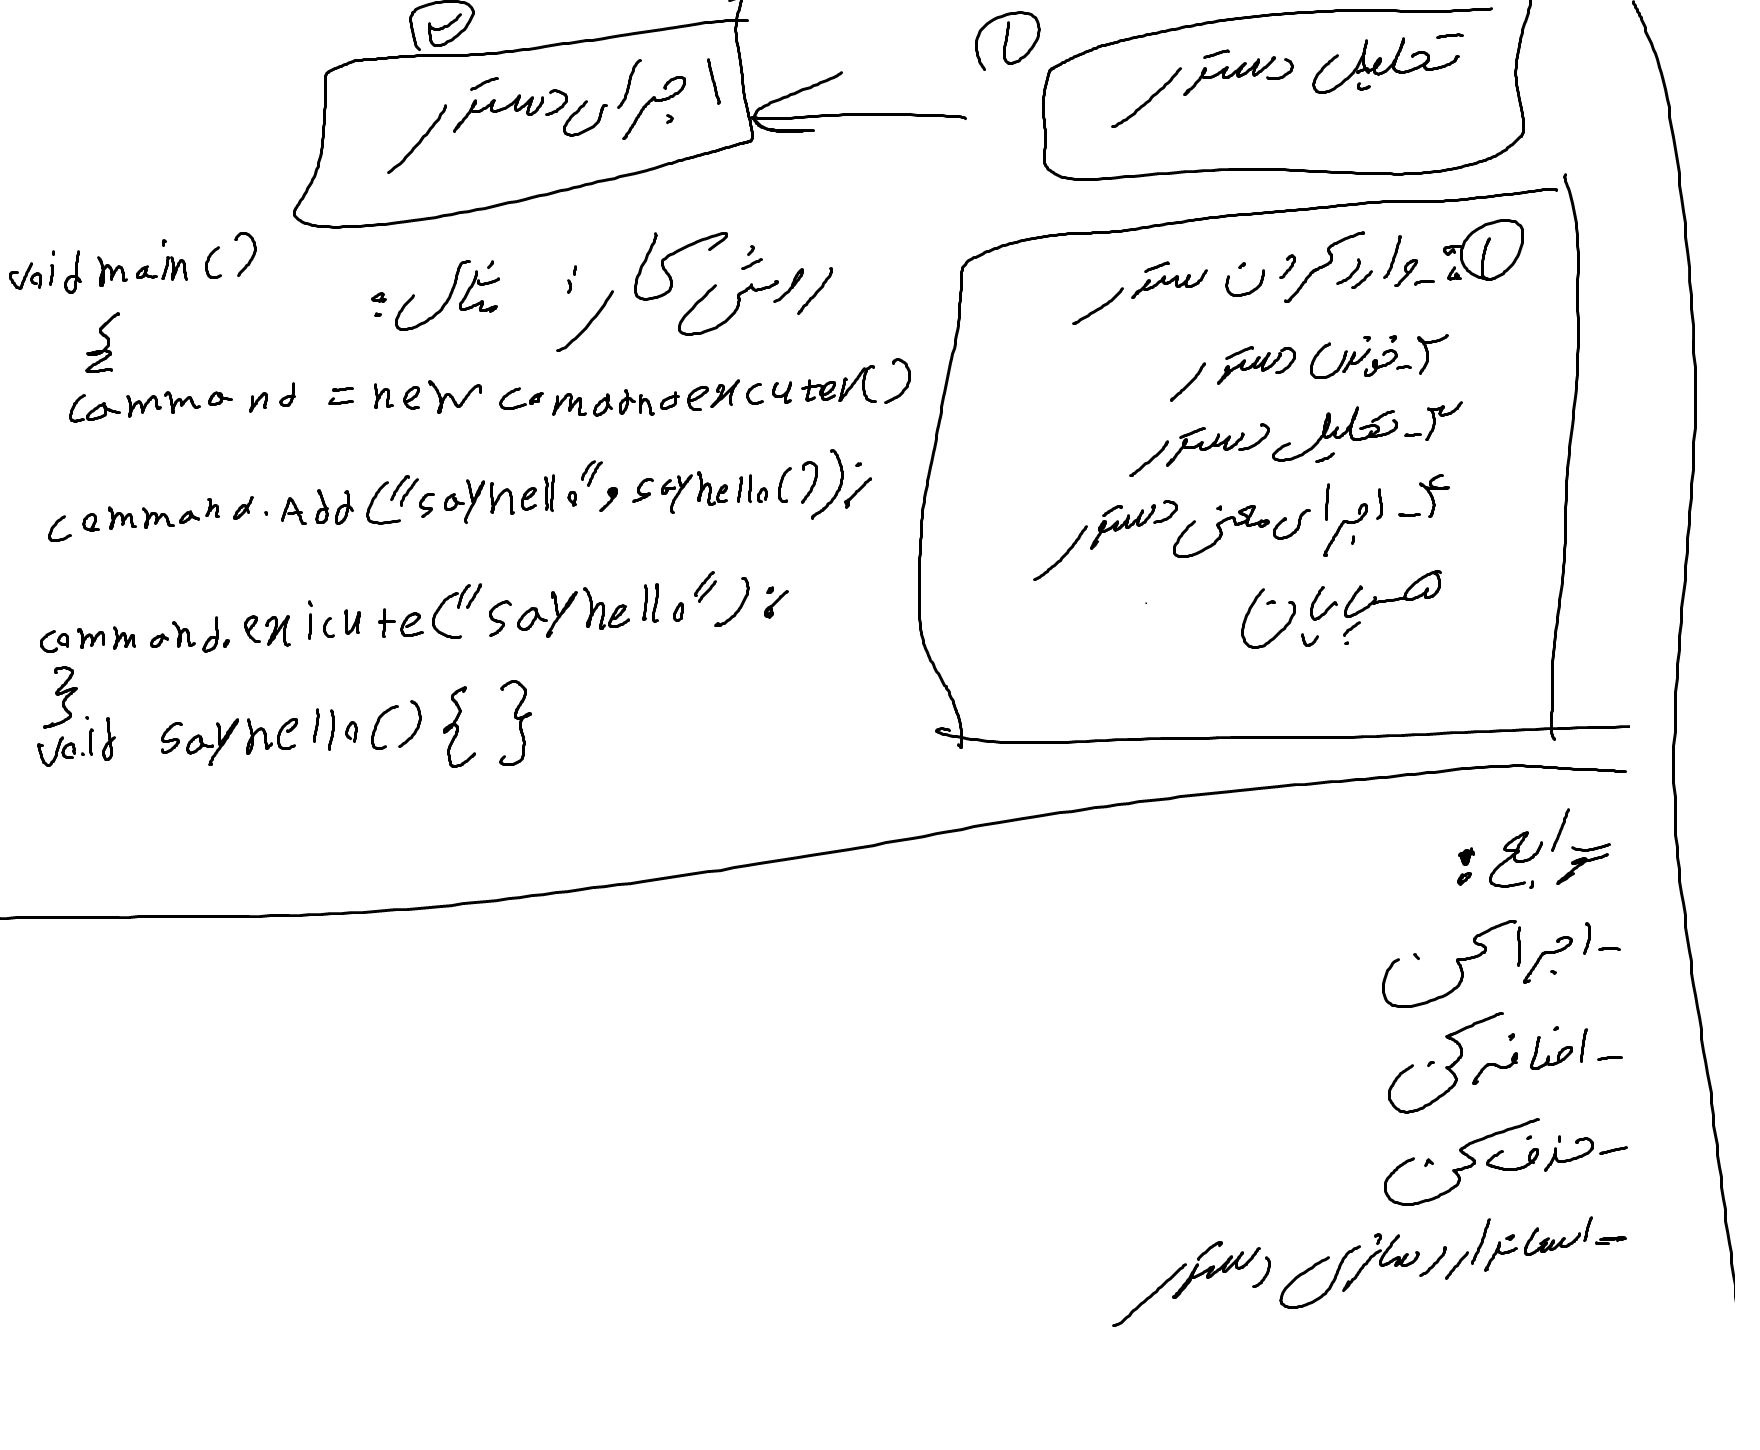 ۱
تحلیل دستور
۲
اجرای دستور
۱ـ وارد کردن ستور
۲ـ خوندن دستور
۳ـ تحلیل دستور
۴ـ اجرای معنی دستور
۵ـ پایان
روش کار؛ مثال:
void main ()
{
command = new comadndexecuter()
command.Add("sayhello", sayhello());
command.exicute("sayhello");
}
void sayhello() { }
توابع:
ـ اجرا کن
ـ اضافه کن
ـ حذف کن
ـ استاندارد سازی دستور